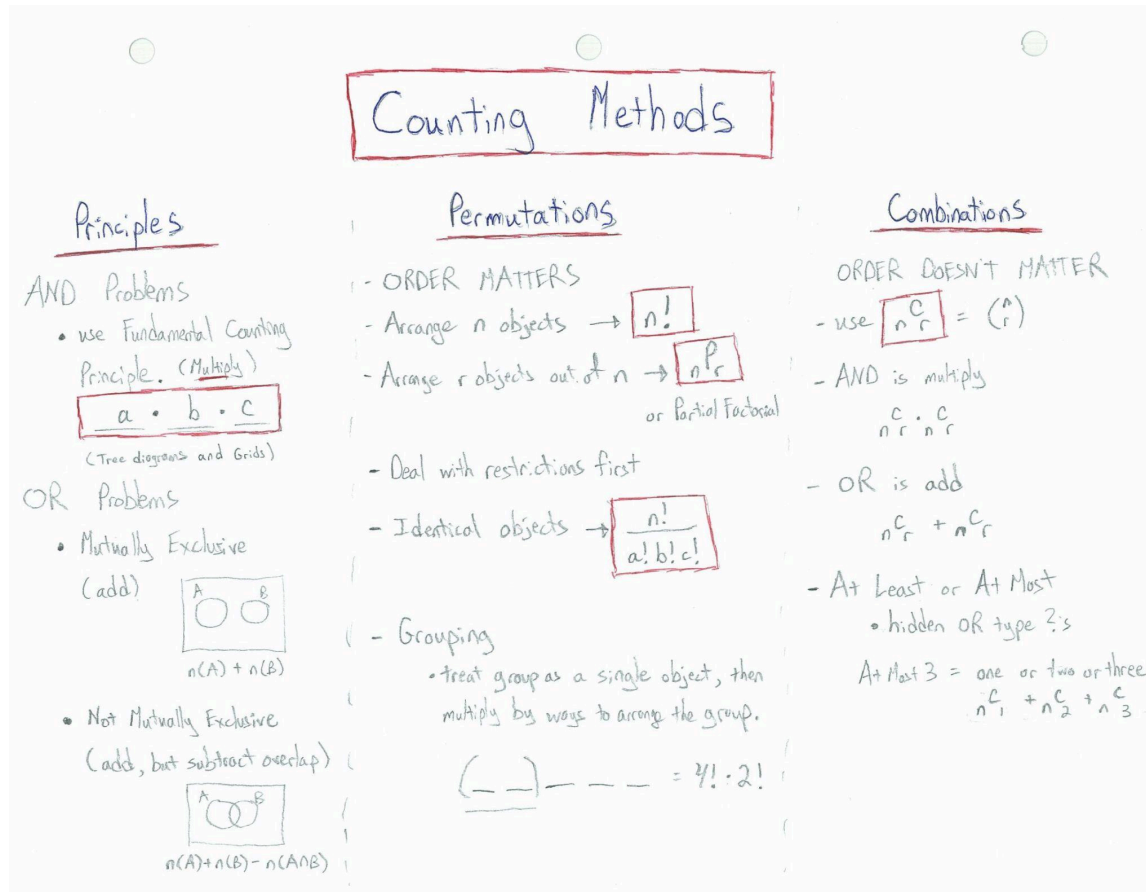 Counting Methods
Principles
AND Problems
• use Fundamental Counting
Principle. (Multiply)
a • b • c
(Tree diagrams and Grids)
OR Problems
• Mutually Exclusive
(add)
A B
n(A) + n(B)
• Not Mutually Exclusive
(add, but subtract overlap)
A B
n(A)+n(B)-n(A∩B)
Permutations
- ORDER MATTERS
- Arrange n objects → n!
- Arrange r objects out of n → nPr
or Partial Factorial
- Deal with restrictions first
- Identical objects → n!
a! b! c!
- Grouping
• treat group as a single object, then
multiply by ways to arrange the group.
(_ _) _ _ _ = 4! · 2!
Combinations
ORDER DOESN'T MATTER
- use nCr = (n r)
- AND is multiply
nCr · nCr
- OR is add
nCr + nCr
- At Least or At Most
• hidden OR type ?'s
At Most 3 = one or two or three
nC1 + nC2 + nC3